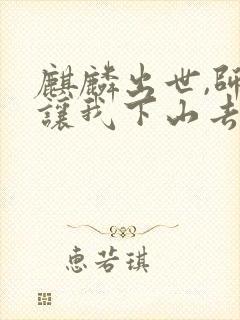 麒麟出世,師
讓我下山去
惠若琪